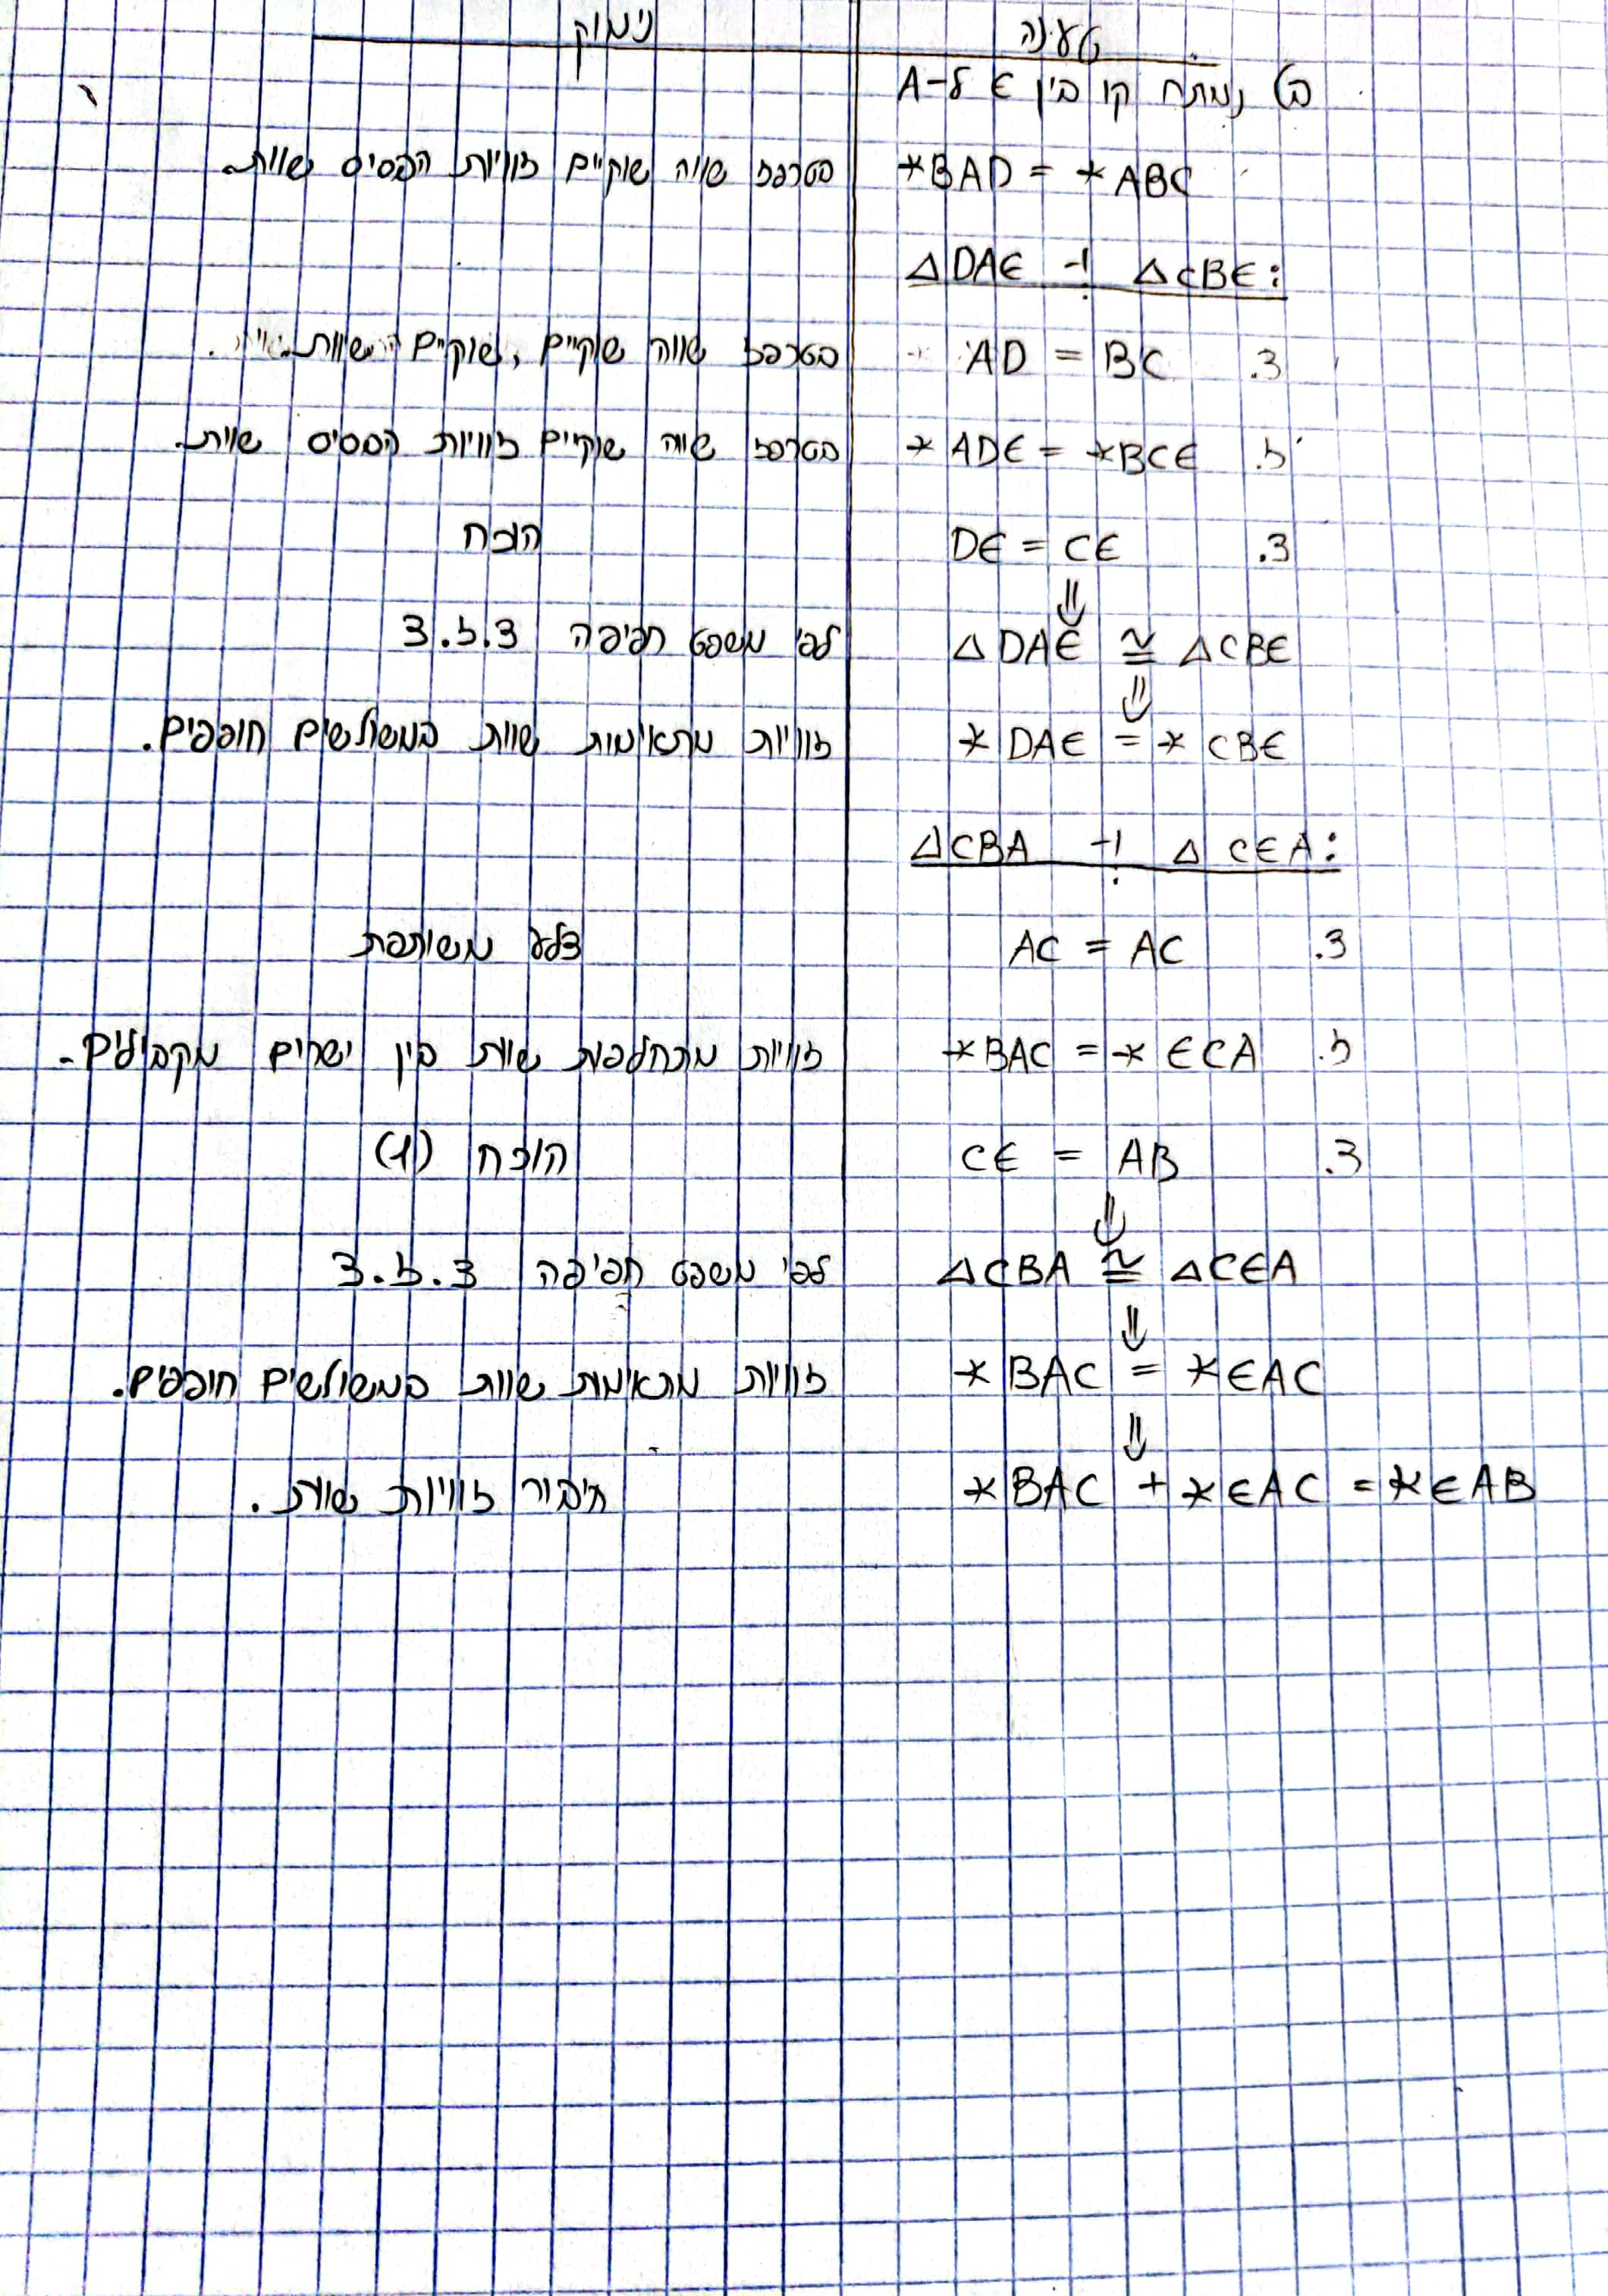 טענה נימוק
ב) נמתח קו בין E ל-A
∢BAD = ∢ABC בטרפז שווה שוקיים זוויות הבסיס שוות.
ΔDAE ו- ΔCBE:
צ. AD = BC בטרפז שווה שוקיים, שוקיים שוות.
ז. ∢ADE = ∢BCE בטרפז שווה שוקיים זוויות הבסיס שוות.
צ. DE = CE הוכח
⇓
ΔDAE ≅ ΔCBE לפי משפט חפיפה צ.ז.צ
⇓
∢DAE = ∢CBE זוויות מתאימות שוות במשולשים חופפים.
ΔCBA ו- ΔCEA:
צ. AC = AC צלע משותפת
ז. ∢BAC = ∢ECA זוויות מתחלפות שוות בין ישרים מקבילים.
צ. CE = AB הוכח (1)
⇓
ΔCBA ≅ ΔCEA לפי משפט חפיפה צ.ז.צ
⇓
∢BAC = ∢EAC זוויות מתאימות שוות במשולשים חופפים.
⇓
∢BAC + ∢EAC = ∢EAB חיבור זוויות שוות.